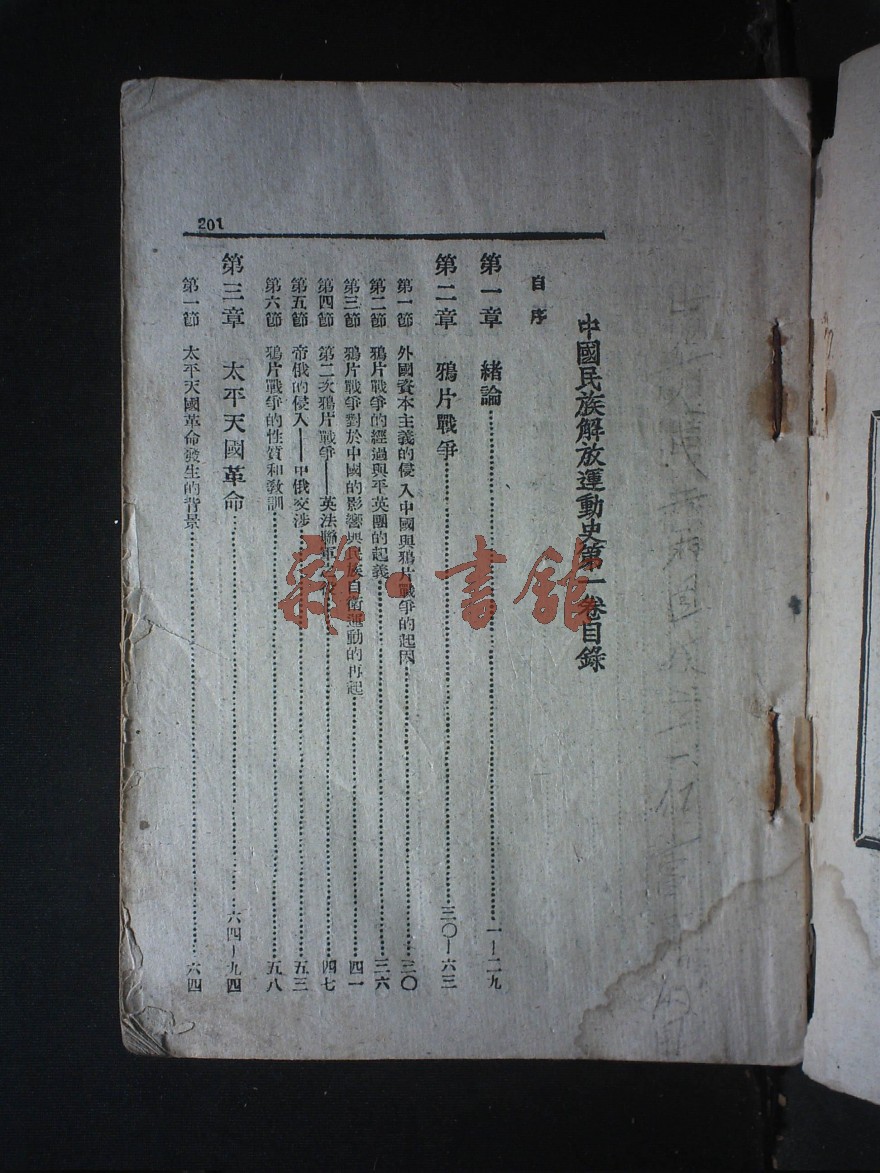 中國民族解放運動史第一卷目錄
自序
第一章 緒論…………一－二九
第二章 鴉片戰爭…………三〇－六三
第一節 外國資本主義的侵入中國與鴉片戰爭的起因…………三〇
第二節 鴉片戰爭的經過與平英團的起義…………三六
第三節 鴉片戰爭對於中國的影響與民族自衛運動的再起…………四一
第四節 第二次鴉片戰爭——英法聯軍之役…………四七
第五節 帝俄的侵入——中俄交涉…………五三
第六節 鴉片戰爭的性質和敎訓…………五八
第三章 太平天國革命…………六四－九四
第一節 太平天國革命發生的背景…………六四
201
雜·書館